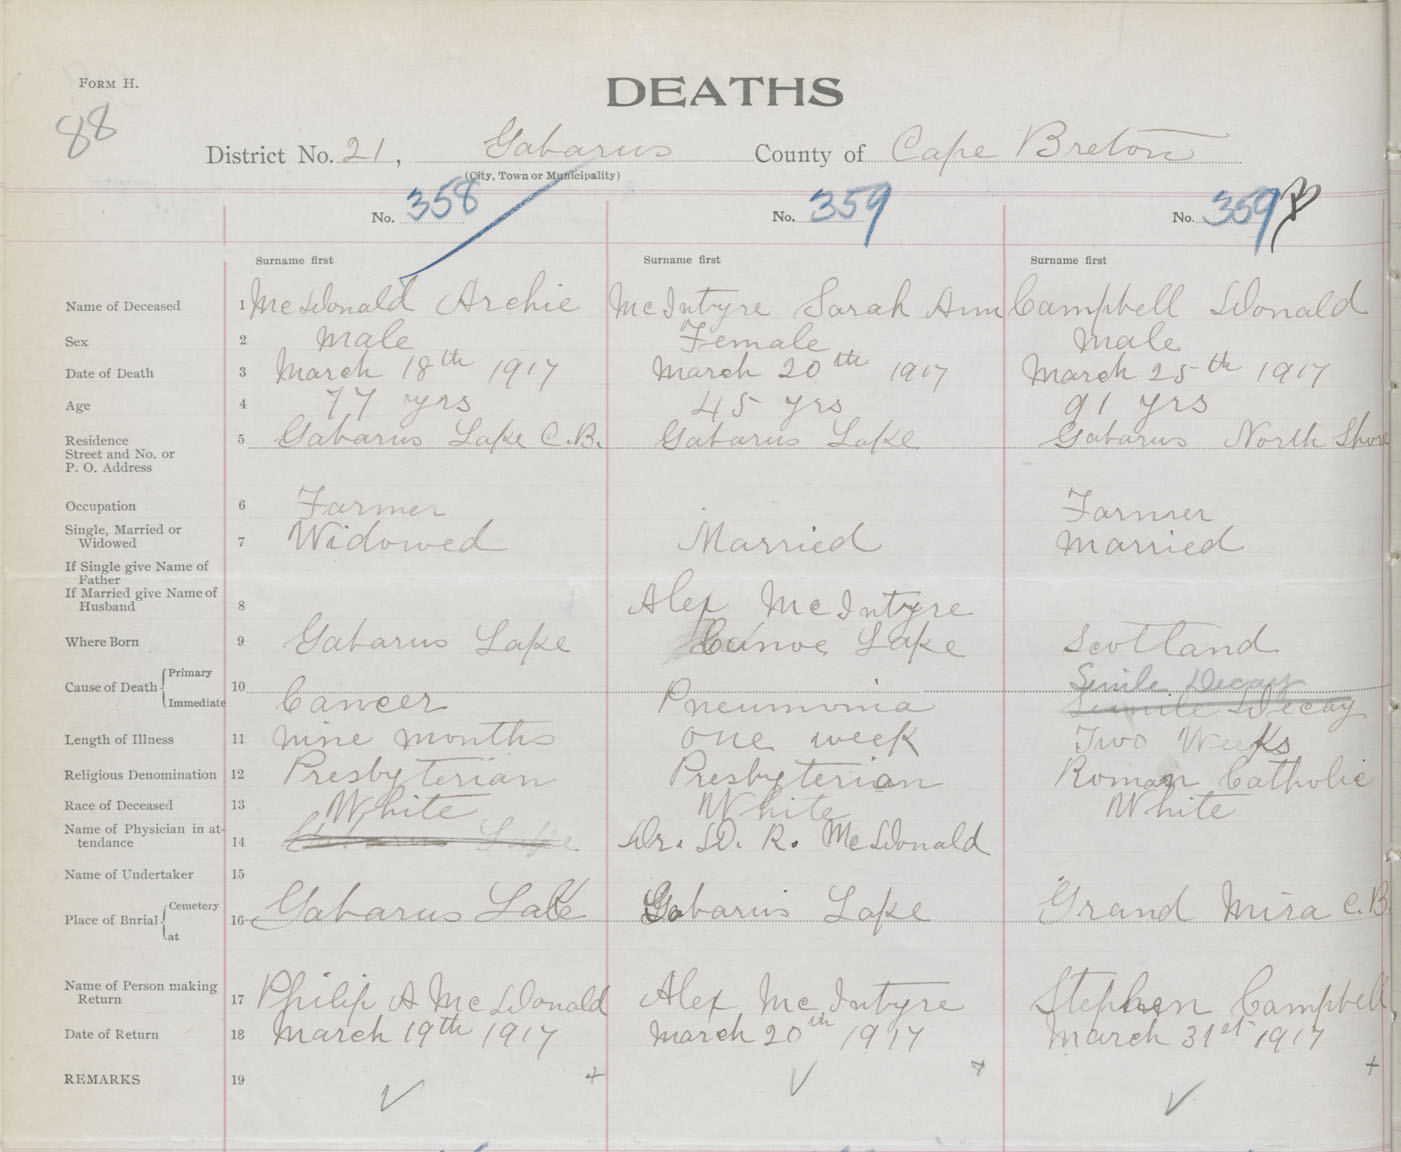 FORM H.
DEATHS
88
District No. 21, Gabarus County of Cape Breton
(City, Town or Municipality)
No. 358 No. 359 No. 359
Surname first Surname first Surname first
Name of Deceased 1 McDonald Archie McIntyre Sarah Ann Campbell Donald
Sex 2 Male Female Male
Date of Death 3 March 18th 1917 March 20th 1917 March 25th 1917
Age 4 77 yrs 45 yrs 91 yrs
Residence 5 Gabarus Lake C.B. Gabarus Lake Gabarus North Shore
Street and No. or
P. O. Address
Occupation 6 Farmer Farmer
Single, Married or
Widowed 7 Widowed Married Married
If Single give Name of
Father
If Married give Name of
Husband 8 Alex McIntyre
Where Born 9 Gabarus Lake Canoe Lake Scotland
Primary Senile Decay
Cause of Death 10
Immediate Cancer Pneumonia Senile Decay
Length of Illness 11 nine months one week Two Weeks
Religious Denomination 12 Presbyterian Presbyterian Roman Catholic
Race of Deceased 13 White White White
Name of Physician in at-
tendance 14 Gabarus Lake Dr. D. R. McDonald
Name of Undertaker 15
Cemetery
Place of Burial 16 Gabarus Lake Gabarus Lake Grand Mira C.B.
at
Name of Person making
Return 17 Philip A McDonald Alex McIntyre Stephen Campbell
Date of Return 18 March 19th 1917 March 20th 1917 March 31st 1917
REMARKS 19